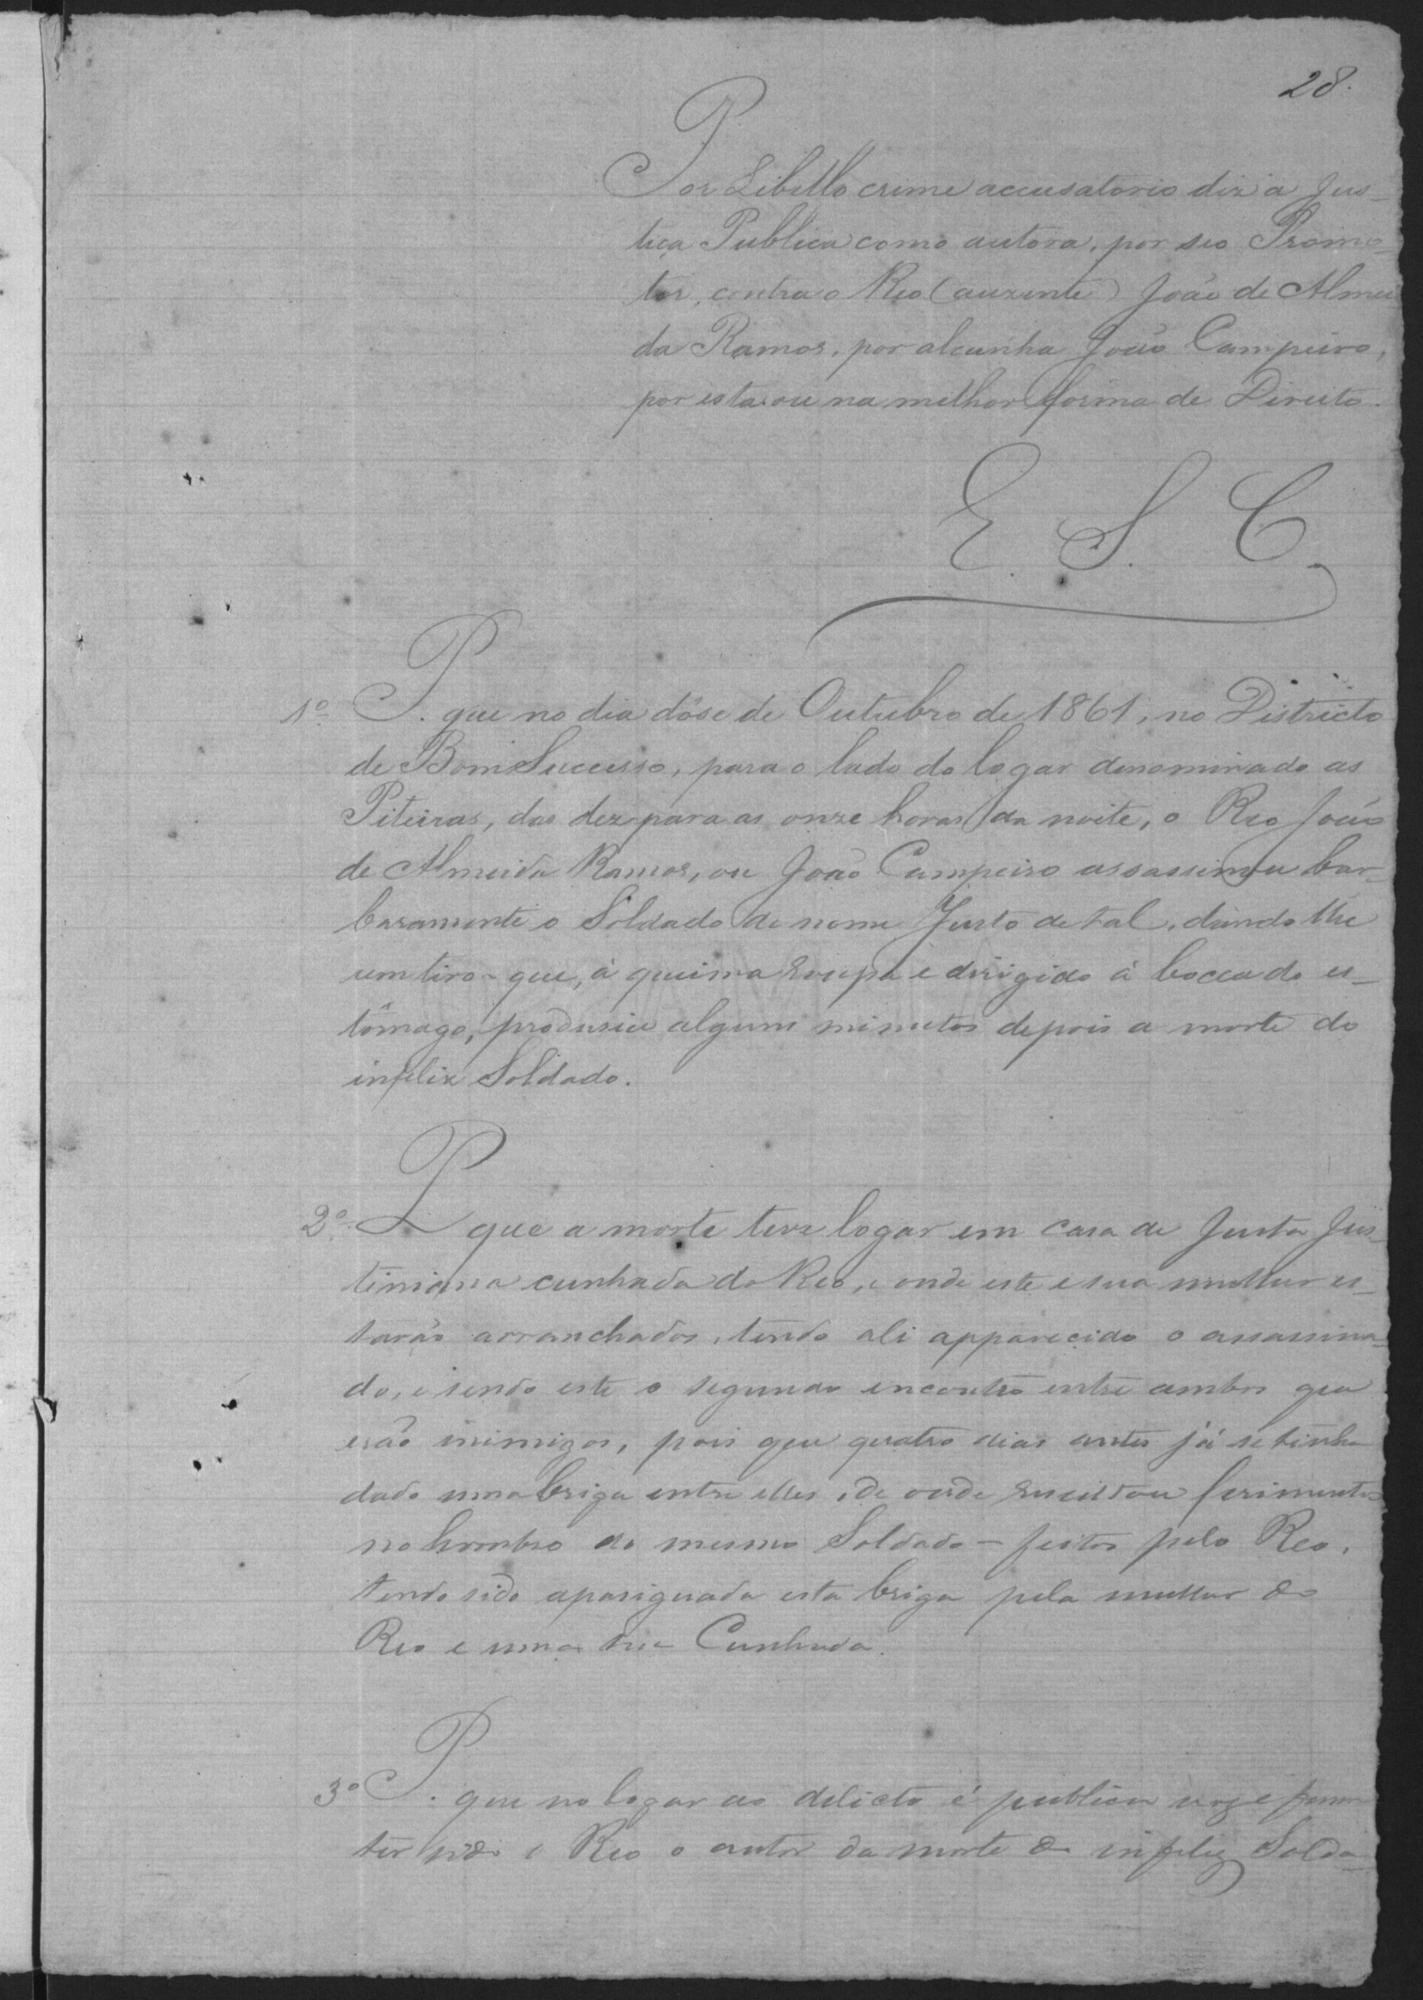 28.
Por Libello crime accusatorio diz a Jus-
tiça Publica como autora, por seo Promo-
tor, contra o Reo (auzente) João de Almei
da Ramos, por alcunha João Campeiro,
por esta ou na melhor forma de Direito.
E. S. C.
1º P. que no dia dóse de Outubro de 1861, no Districto
de Bom Successo, para o lado do logar denominado as
Piteiras, das dez para as onze horas da noite, o Reo João
de Almeida Ramos, ou João Campeiro assassinou bar-
baramente o Soldado de nome Justo de tal, dando lhe
um tiro - que, á queima roupa e dirigido á bocca do es-
tômago, produsiu alguns minutos depois a morte do
infeliz Soldado.
2º P. que a morte teve logar em casa de Justa Jus-
tiniana cunhada do Reo, e onde este e sua mulher es-
tavão arranchados, tendo ali apparecido o assassina-
do, e sendo este o segundo encontro entre ambos que
erão inimigos, pois que quatro dias antes já se tinha
dado uma briga entre elles, de onde resultou ferimentos
no hombro do mesmo Soldado - feitos pelo Reo,
tendo sido apasiguada esta briga pela mulher do
Reo e uma sua Cunhada.
3º P. que no logar do delicto é publica voz e fama
ter sido o Reo o autor da morte do infeliz Solda-